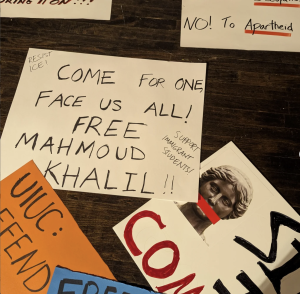 NO! To Apartheid
RESIST
ICE!
COME FOR ONE,
FACE US ALL!
FREE
MAHMOUD
KHALIL!!
SUPPORT
IMMIGRANT
STUDENTS!
UIUC:
COM
FREE